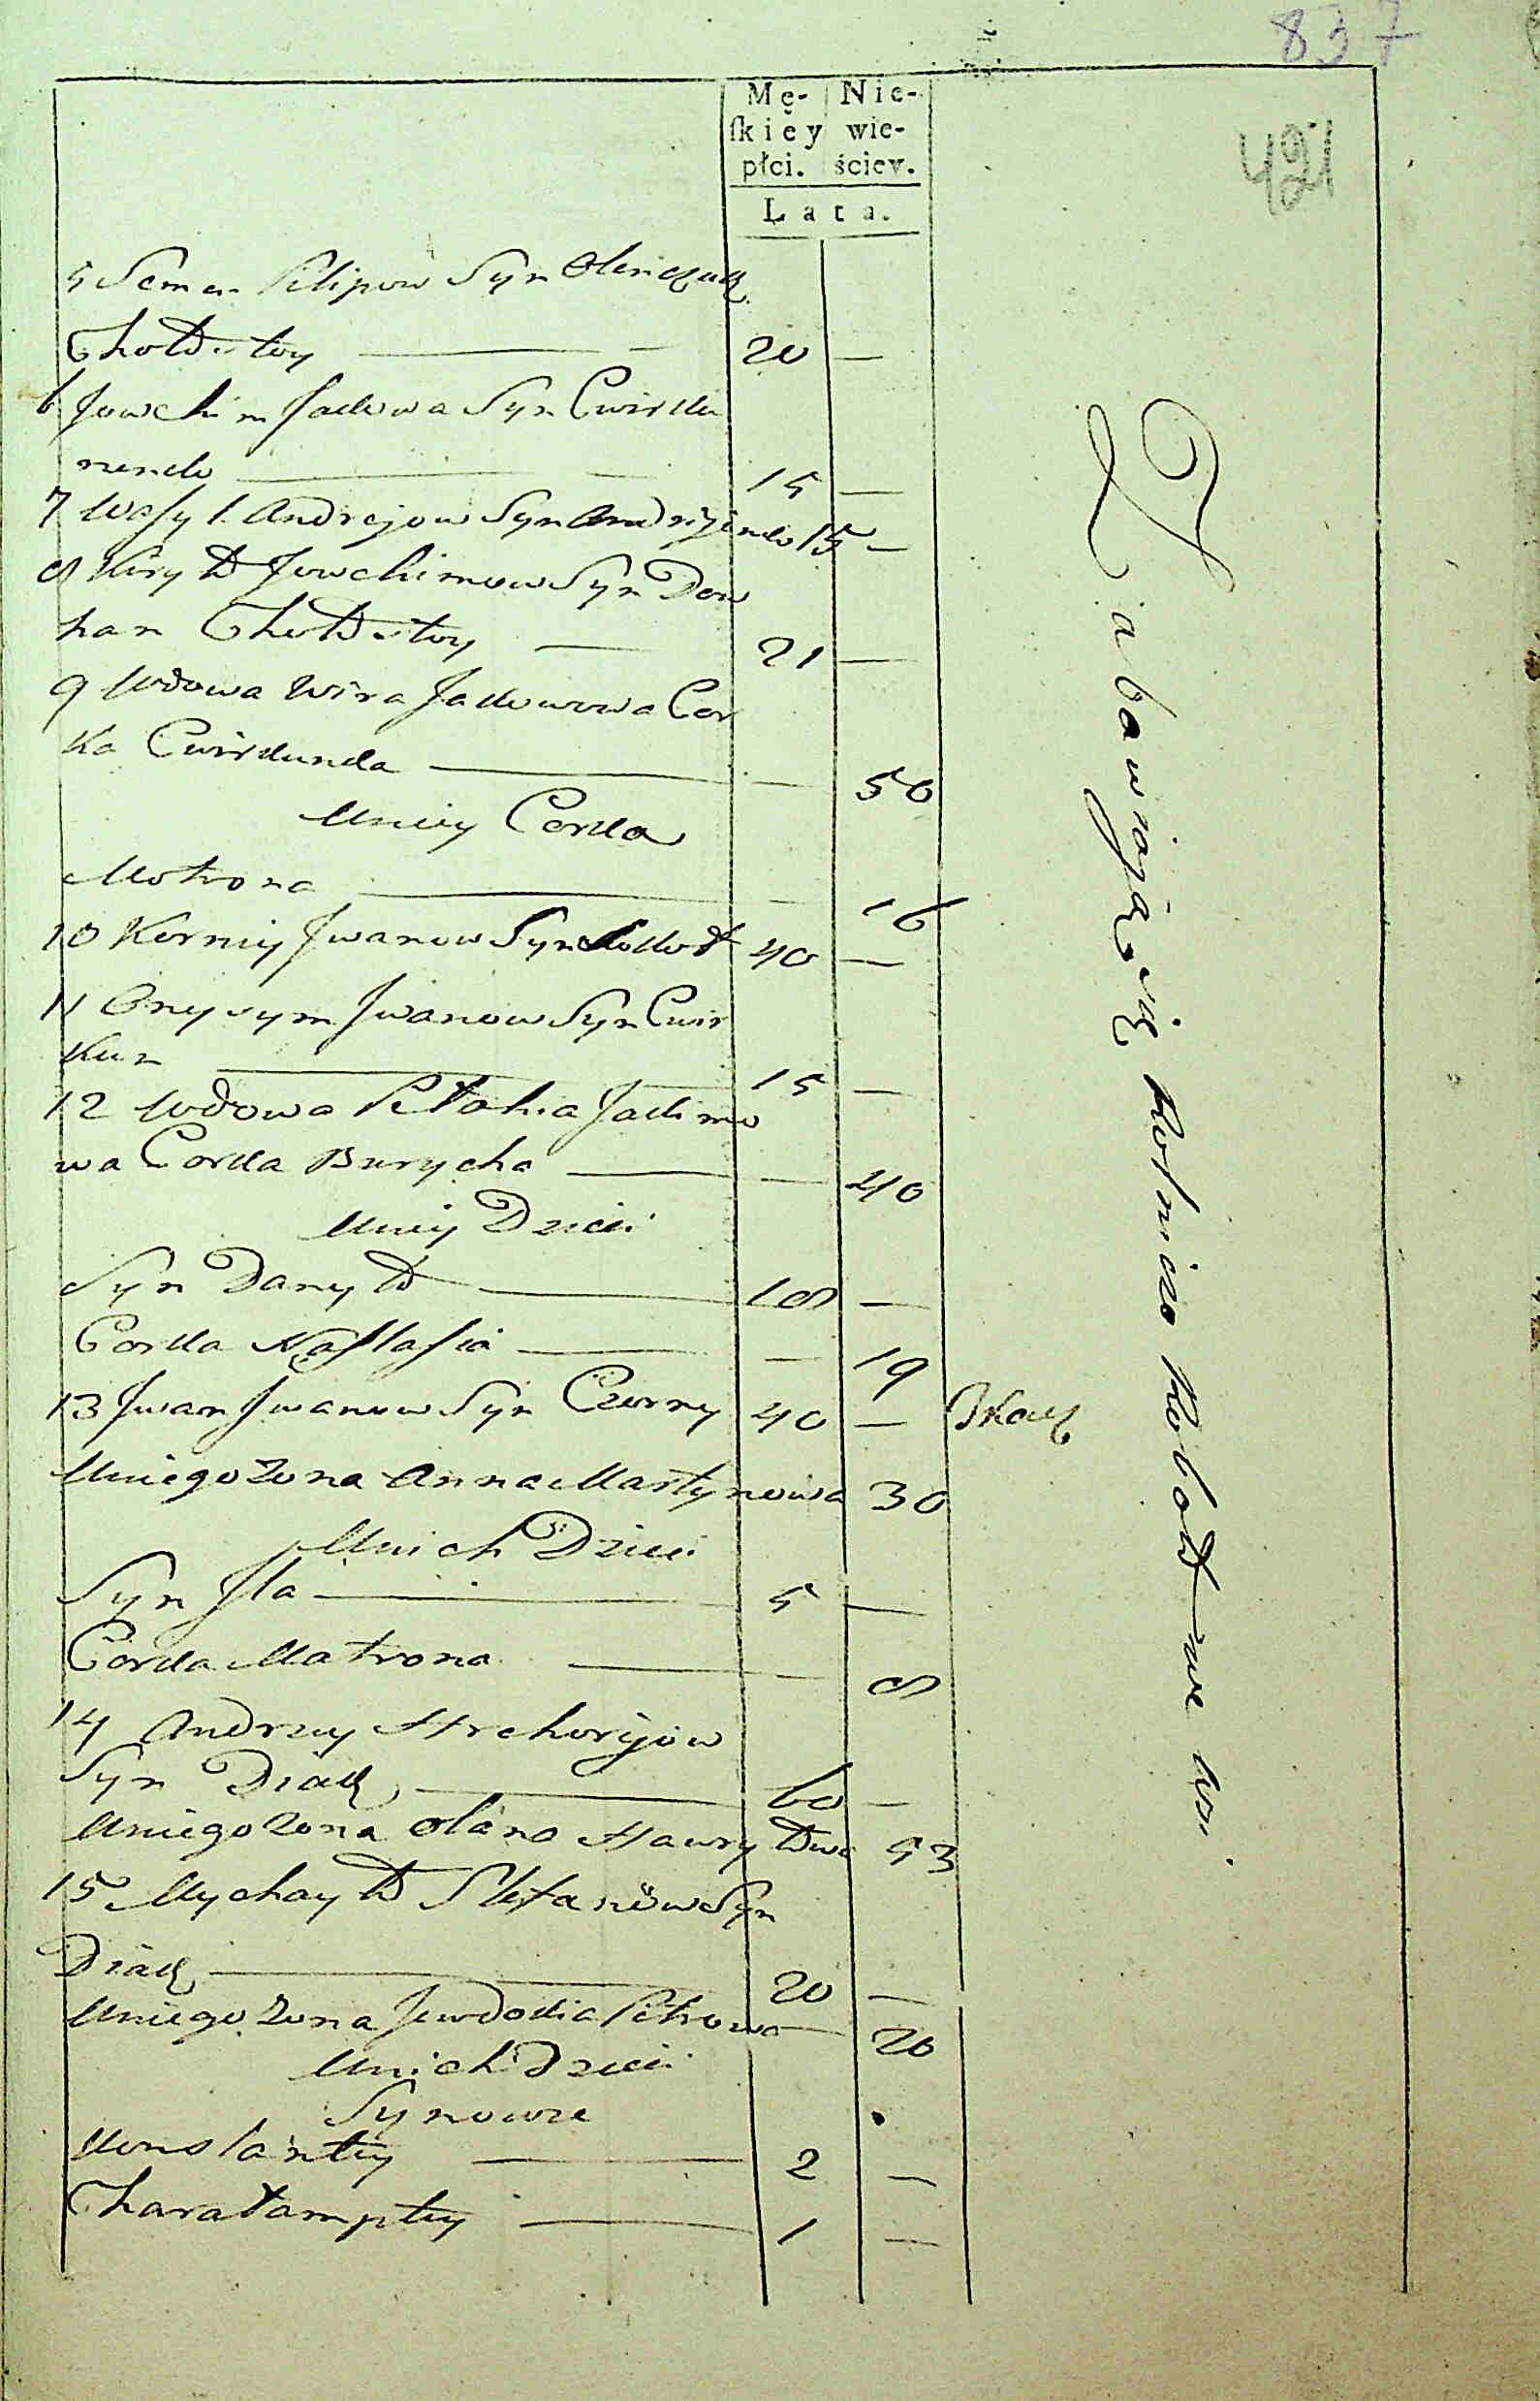 837
421
Mę- Nie-
ſkiey wie-
płci. ściey.
Lata.
5 Semen Pilipow Syn Olenczuk
Chołosty — 20 —
6 Jowchim Jakowa Syn Cwirku
nenko — 15 —
7 Wasyl Andrejow Syn Andrijenko 15 —
8 Kiryło Jowchimow Syn Dow
han Chołosty — 21 —
9 Wdowa Wira Jakowowa Cor
ka Cwirkunka — 50
Uniey Corka
Motrona — 16
10 Korniy Jwanow Syn 40 —
11 Onysym Jwanow Syn Cwir
kun — 15 —
12 Wdowa Pełahia Jakimo
wa Corka Burycha — 40
Uniey Dzieci
Syn Danyło — 18 —
Corka Nastasia — 19
13 Jwan Jwanow Syn Czorny 40 — Tkacz
Uniego Zona Anna Martynowa 30
Unich Dzieci
Syn Jla — 5 —
Corka Matrona — 8
14 Andrzey Hrehorijow
Syn Diak — 60 —
Uniego Zona Olana Hawryłowa 53
15 Mychayło Stefanów Syn
Diak — 20 —
Uniego Zona Jewdokia Petrowa — 20
Unich Dzieci
Synowie
Konstanty — 2 —
Charałampty — 1 —
Zabawiaiące się Rolniczo Robotą we wsi